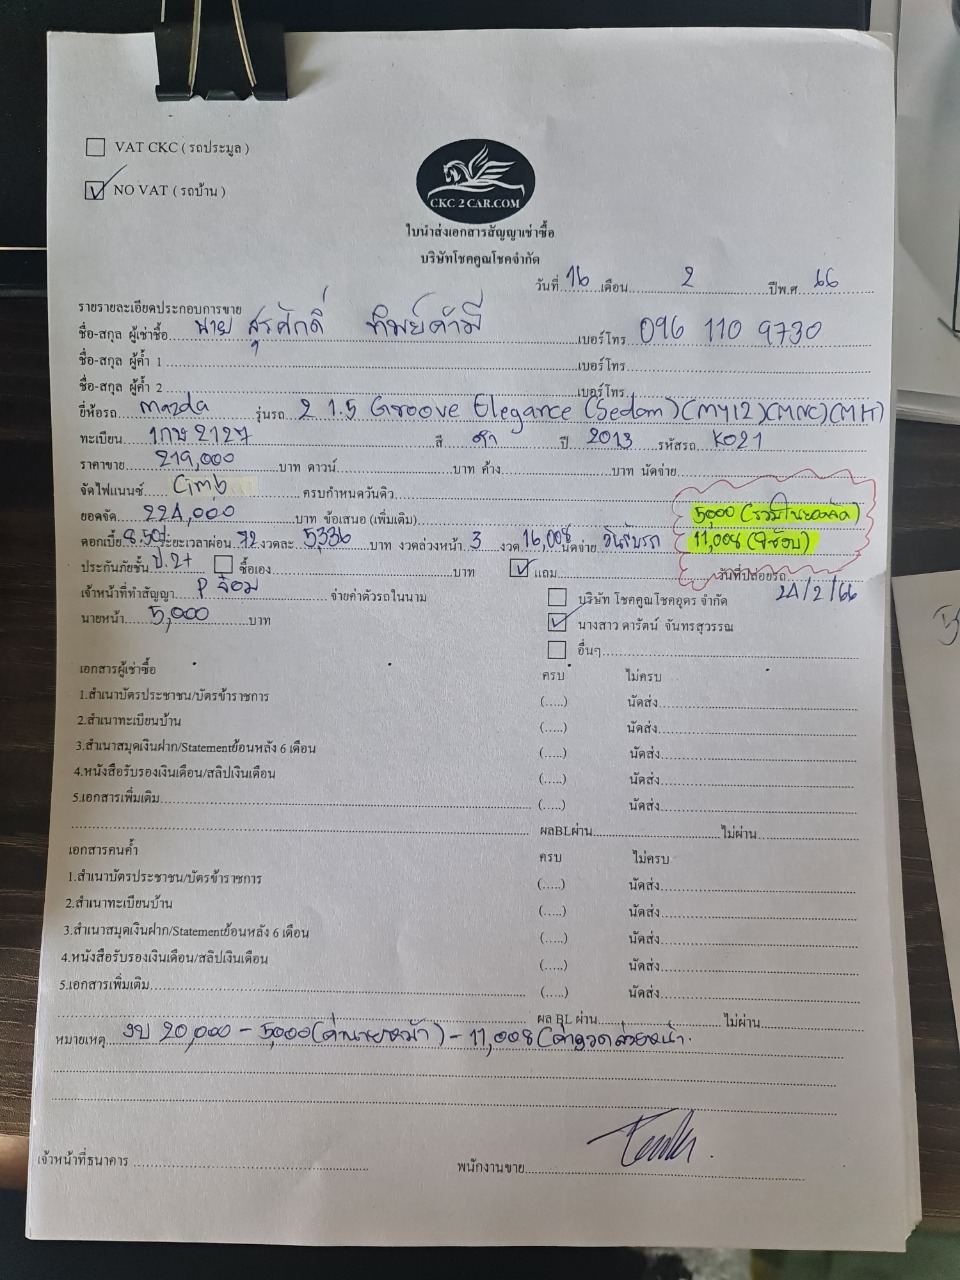 VAT CKC ( รถประมูล )
NO VAT ( รถบ้าน )
CKC 2 CAR.COM
ใบนำส่งเอกสารสัญญาเช่าซื้อ
บริษัทโชคคูณโชคจำกัด
วันที่ 16 เดือน 2 ปีพ.ศ 66
รายรายละเอียดประกอบการขาย
ชื่อ-สกุล ผู้เช่าซื้อ นาย สุรศักดิ์ ทิพย์คำมี เบอร์โทร 096 110 9730
ชื่อ-สกุล ผู้ค้ำ 1 เบอร์โทร
ชื่อ-สกุล ผู้ค้ำ 2 เบอร์โทร
ยี่ห้อรถ mazda รุ่นรถ 2 1.5 Groove Elegance (Sedan) (MY12) (MNC) (MH)
ทะเบียน 1กษ 2127 สี ดำ ปี 2013 รหัสรถ K021
ราคาขาย 219,000 บาท ดาวน์ บาท ค้าง บาท นัดจ่าย
จัดไฟแนนซ์ Cimb ครบกำหนดวันคิว
ยอดจัด 224,000 บาท ข้อเสนอ (เพิ่มเติม) 5,000 (รวมในยอดจัด)
ดอกเบี้ย 8.50% ระยะเวลาผ่อน 72 งวดละ 5,336 บาท งวดล่วงหน้า 3 งวด 16,008 นัดจ่าย วันรับรถ 11,008 (ใช้งบ)
ประกันภัยชั้น ป.2+ ซื้อเอง บาท แถม วันที่ปล่อยรถ 24/2/66
เจ้าหน้าที่ทำสัญญา P จ๋อม จ่ายค่าตัวรถในนาม บริษัท โชคคูณโชคอุดร จำกัด
นายหน้า 5,000 บาท นางสาว ดารัตน์ จันทรสุวรรณ
อื่นๆ
เอกสารผู้เช่าซื้อ ครบ ไม่ครบ
1.สำเนาบัตรประชาชน/บัตรข้าราชการ (.....) นัดส่ง
2.สำเนาทะเบียนบ้าน (.....) นัดส่ง
3.สำเนาสมุดเงินฝาก/Statementย้อนหลัง 6 เดือน (.....) นัดส่ง
4.หนังสือรับรองเงินเดือน/สลิปเงินเดือน (.....) นัดส่ง
5.เอกสารเพิ่มเติม (.....) นัดส่ง
ผลBLผ่าน ไม่ผ่าน
เอกสารคนค้ำ ครบ ไม่ครบ
1.สำเนาบัตรประชาชน/บัตรข้าราชการ (.....) นัดส่ง
2.สำเนาทะเบียนบ้าน (.....) นัดส่ง
3.สำเนาสมุดเงินฝาก/Statementย้อนหลัง 6 เดือน (.....) นัดส่ง
4.หนังสือรับรองเงินเดือน/สลิปเงินเดือน (.....) นัดส่ง
5.เอกสารเพิ่มเติม (.....) นัดส่ง
ผล BL ผ่าน ไม่ผ่าน
หมายเหตุ งบ 20,000 - 5,000 (ค่านายหน้า) - 11,008 (ค่างวดล่วงหน้า.
เจ้าหน้าที่ธนาคาร พนักงานขาย